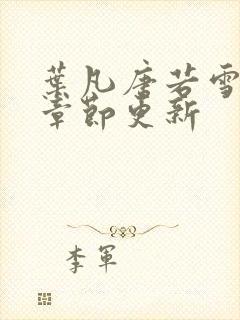 葉凡唐若雪
章節更新
李軍